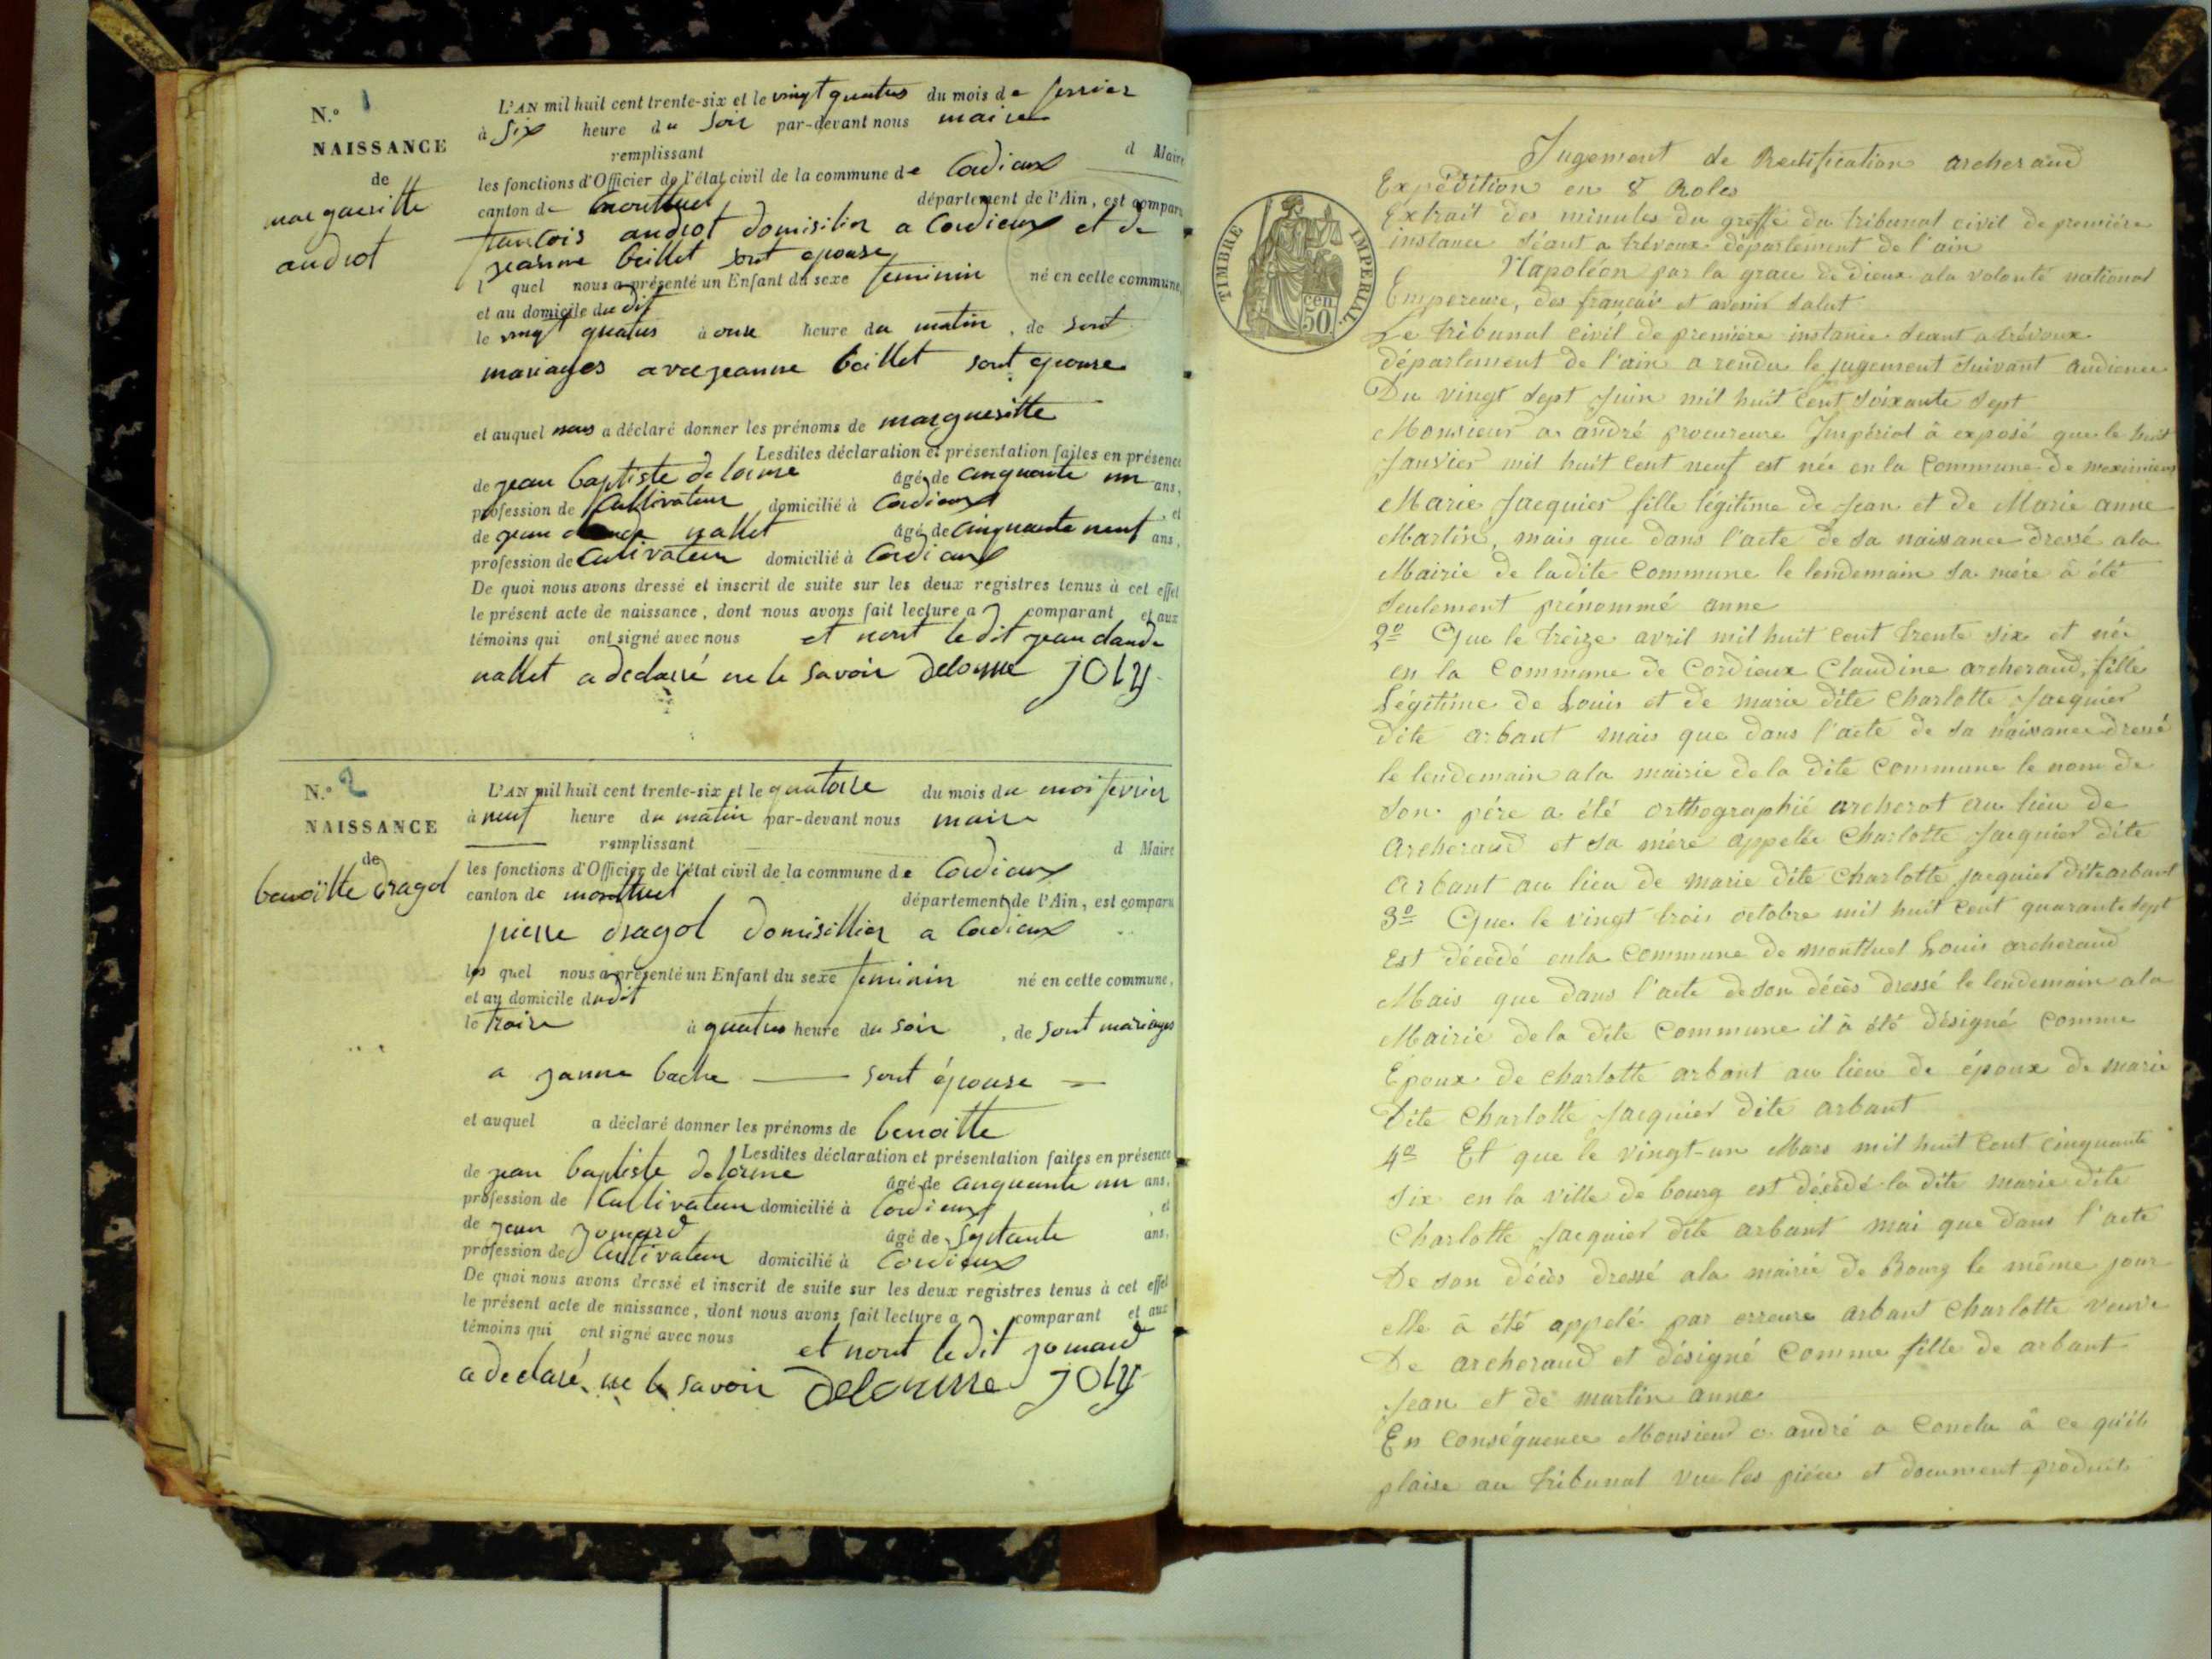 N.o 1
NAISSANCE
de
margueritte
audrot
L'AN mil huit cent trente-six et le vingt quatres du mois de fevrier
à six heure du soir par-devant nous maire
remplissant d Maire
les fonctions d'Officier de l'état civil de la commune de Cordieux
canton de montluel département de l'Ain, est comparu
francois audrot domisilier a Cordieux et de
jeanne beillet sont epouse
l quel nous a présenté un Enfant du sexe feminin né en cette commune,
et au domicile du dit
le vingt quatres à onse heure du matin, de sont
mariages avec jeanne beillet sont epouse
et auquel nous a déclaré donner les prénoms de margueritte
Lesdites déclaration et présentation faites en présence
de jean baptiste delorme âgé de cinquante un ans,
profession de Cultivateur domicilié à Cordieux, et
de jean claude nallet âgé de cinquante neuf ans,
profession de Cultivateur domicilié à Cordieux
De quoi nous avons dressé et inscrit de suite sur les deux registres tenus à cet effet
le présent acte de naissance, dont nous avons fait lecture a comparant et aux
témoins qui ont signé avec nous et nont le dit jean claude
nallet a declarré ne le savoir delorme joly
N.o 2
NAISSANCE
de
benoitte dragol
L'AN mil huit cent trente-six et le quatorse du mois du moi fevrier
à neuf heure du matin par-devant nous maire
remplissant d Maire
les fonctions d'Officier de l'état civil de la commune de Cordieux
canton de montluel département de l'Ain, est comparu
pierre dragol domisillier a Cordieux
les quel nous a présenté un Enfant du sexe feminin né en cette commune,
et au domicile dudit
le traise à quatres heure du soir, de sont mariages
a janne bache sont épouse
et auquel a déclaré donner les prénoms de benoitte
Lesdites déclaration et présentation faites en présence
de jean baptiste delorme âgé de cinquante un ans,
profession de Cultivateur domicilié à Cordieux, et
de jean jomard âgé de septante ans,
profession de Cultivateur domicilié à Cordieux
De quoi nous avons dressé et inscrit de suite sur les deux registres tenus à cet effet
le présent acte de naissance, dont nous avons fait lecture a comparant et aux
témoins qui ont signé avec nous et nont le dit jomard
a declaré ne le savoir delorme joly
TIMBRE IMPERIAL
50 cen
Jugement de Rectification archeraud
Expédition en 8 Roles
Extrait des minutes du greffe du tribunal civil de première
instance séant a trévoux département de l'ain
Napoléon par la grace de dieux ala volonté national
Empereure, des français et avenir salut
Le tribunal civil de première instance séant a trévoux
département de l'ain a rendu le jugement suivant audience
Du vingt sept Juin mil huit cent soixante sept
Monsieur a. andré procureure Impérial à exposé que le huit
Janvier mil huit cent neuf est née en la commune de meximieux
Marie Jacquier fille légitime de Jean et de Marie anne
Martin, mais que dans l'acte de sa naissance dressé ala
Mairie de ladite commune le lendemain sa mère à été
seulement prénommé anne
2o Que le treize avril mil huit cent trente six et née
en la commune de Cordieux Claudine archeraud, fille
Légitime de Louis et de marie dite Charlotte Jacquier
dite arbant mais que dans l'acte de sa naissance dressé
le lendemain ala mairie de la dite commune le nom de
son père a été orthographié archerot au lieu de
archeraud et sa mère appelée Charlotte Jacquier dite
arbant au lieu de marie dite Charlotte jacquier dite arbant
3o Que le vingt trois octobre mil huit cent quarante sept
Est décédé en la commune de montluel Louis archeraud
Mais que dans l'acte de son décès dressé le lendemain ala
Mairie de la dite commune il à été désigné comme
Epoux de charlotte arbant au lieu de époux de marie
Dite Charlotte Jacquier dite arbant
4o Et que le vingt-un Mars mil huit cent cinquante
six en la ville de bourg est décédé la dite marie dite
Charlotte Jacquier dite arbant mai que dans l'acte
De son décès dressé ala mairie de Bourg le même jour
elle à été appelé par erreure arbant Charlotte veuve
De archeraud et désigné comme fille de arbant
Jean et de martin anne
En conséquence Monsieur a. andré a conclu à ce qu'il
plaise au tribunal vu les pièces et document produits